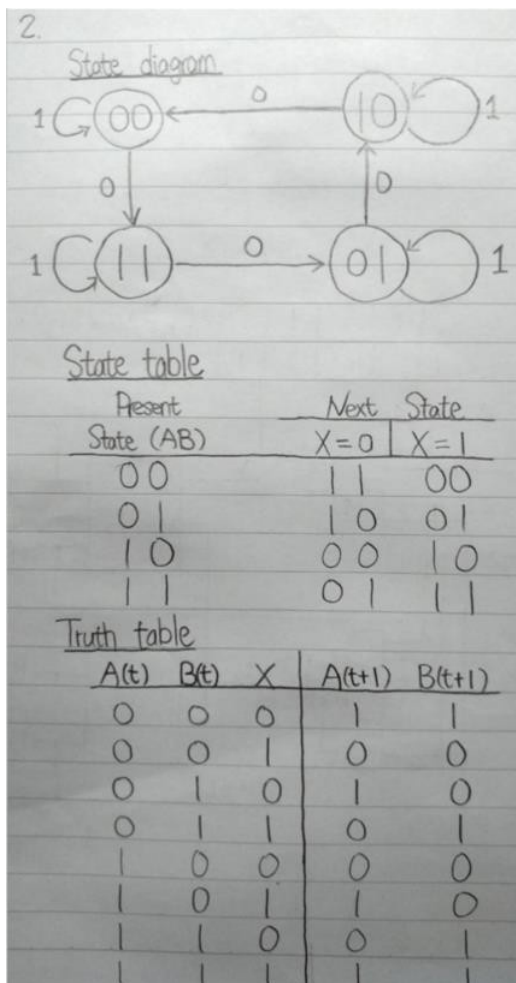 2.
State diagram
1 00 0 10 1
0 0
1 11 0 01 1
State table
Present Next State
State (AB) X=0 X=1
00 11 00
01 10 01
10 00 10
11 01 11
Truth table
A(t) B(t) X A(t+1) B(t+1)
0 0 0 1 1
0 0 1 0 0
0 1 0 1 0
0 1 1 0 1
1 0 0 0 0
1 0 1 1 0
1 1 0 0 1
1 1 1 1 1